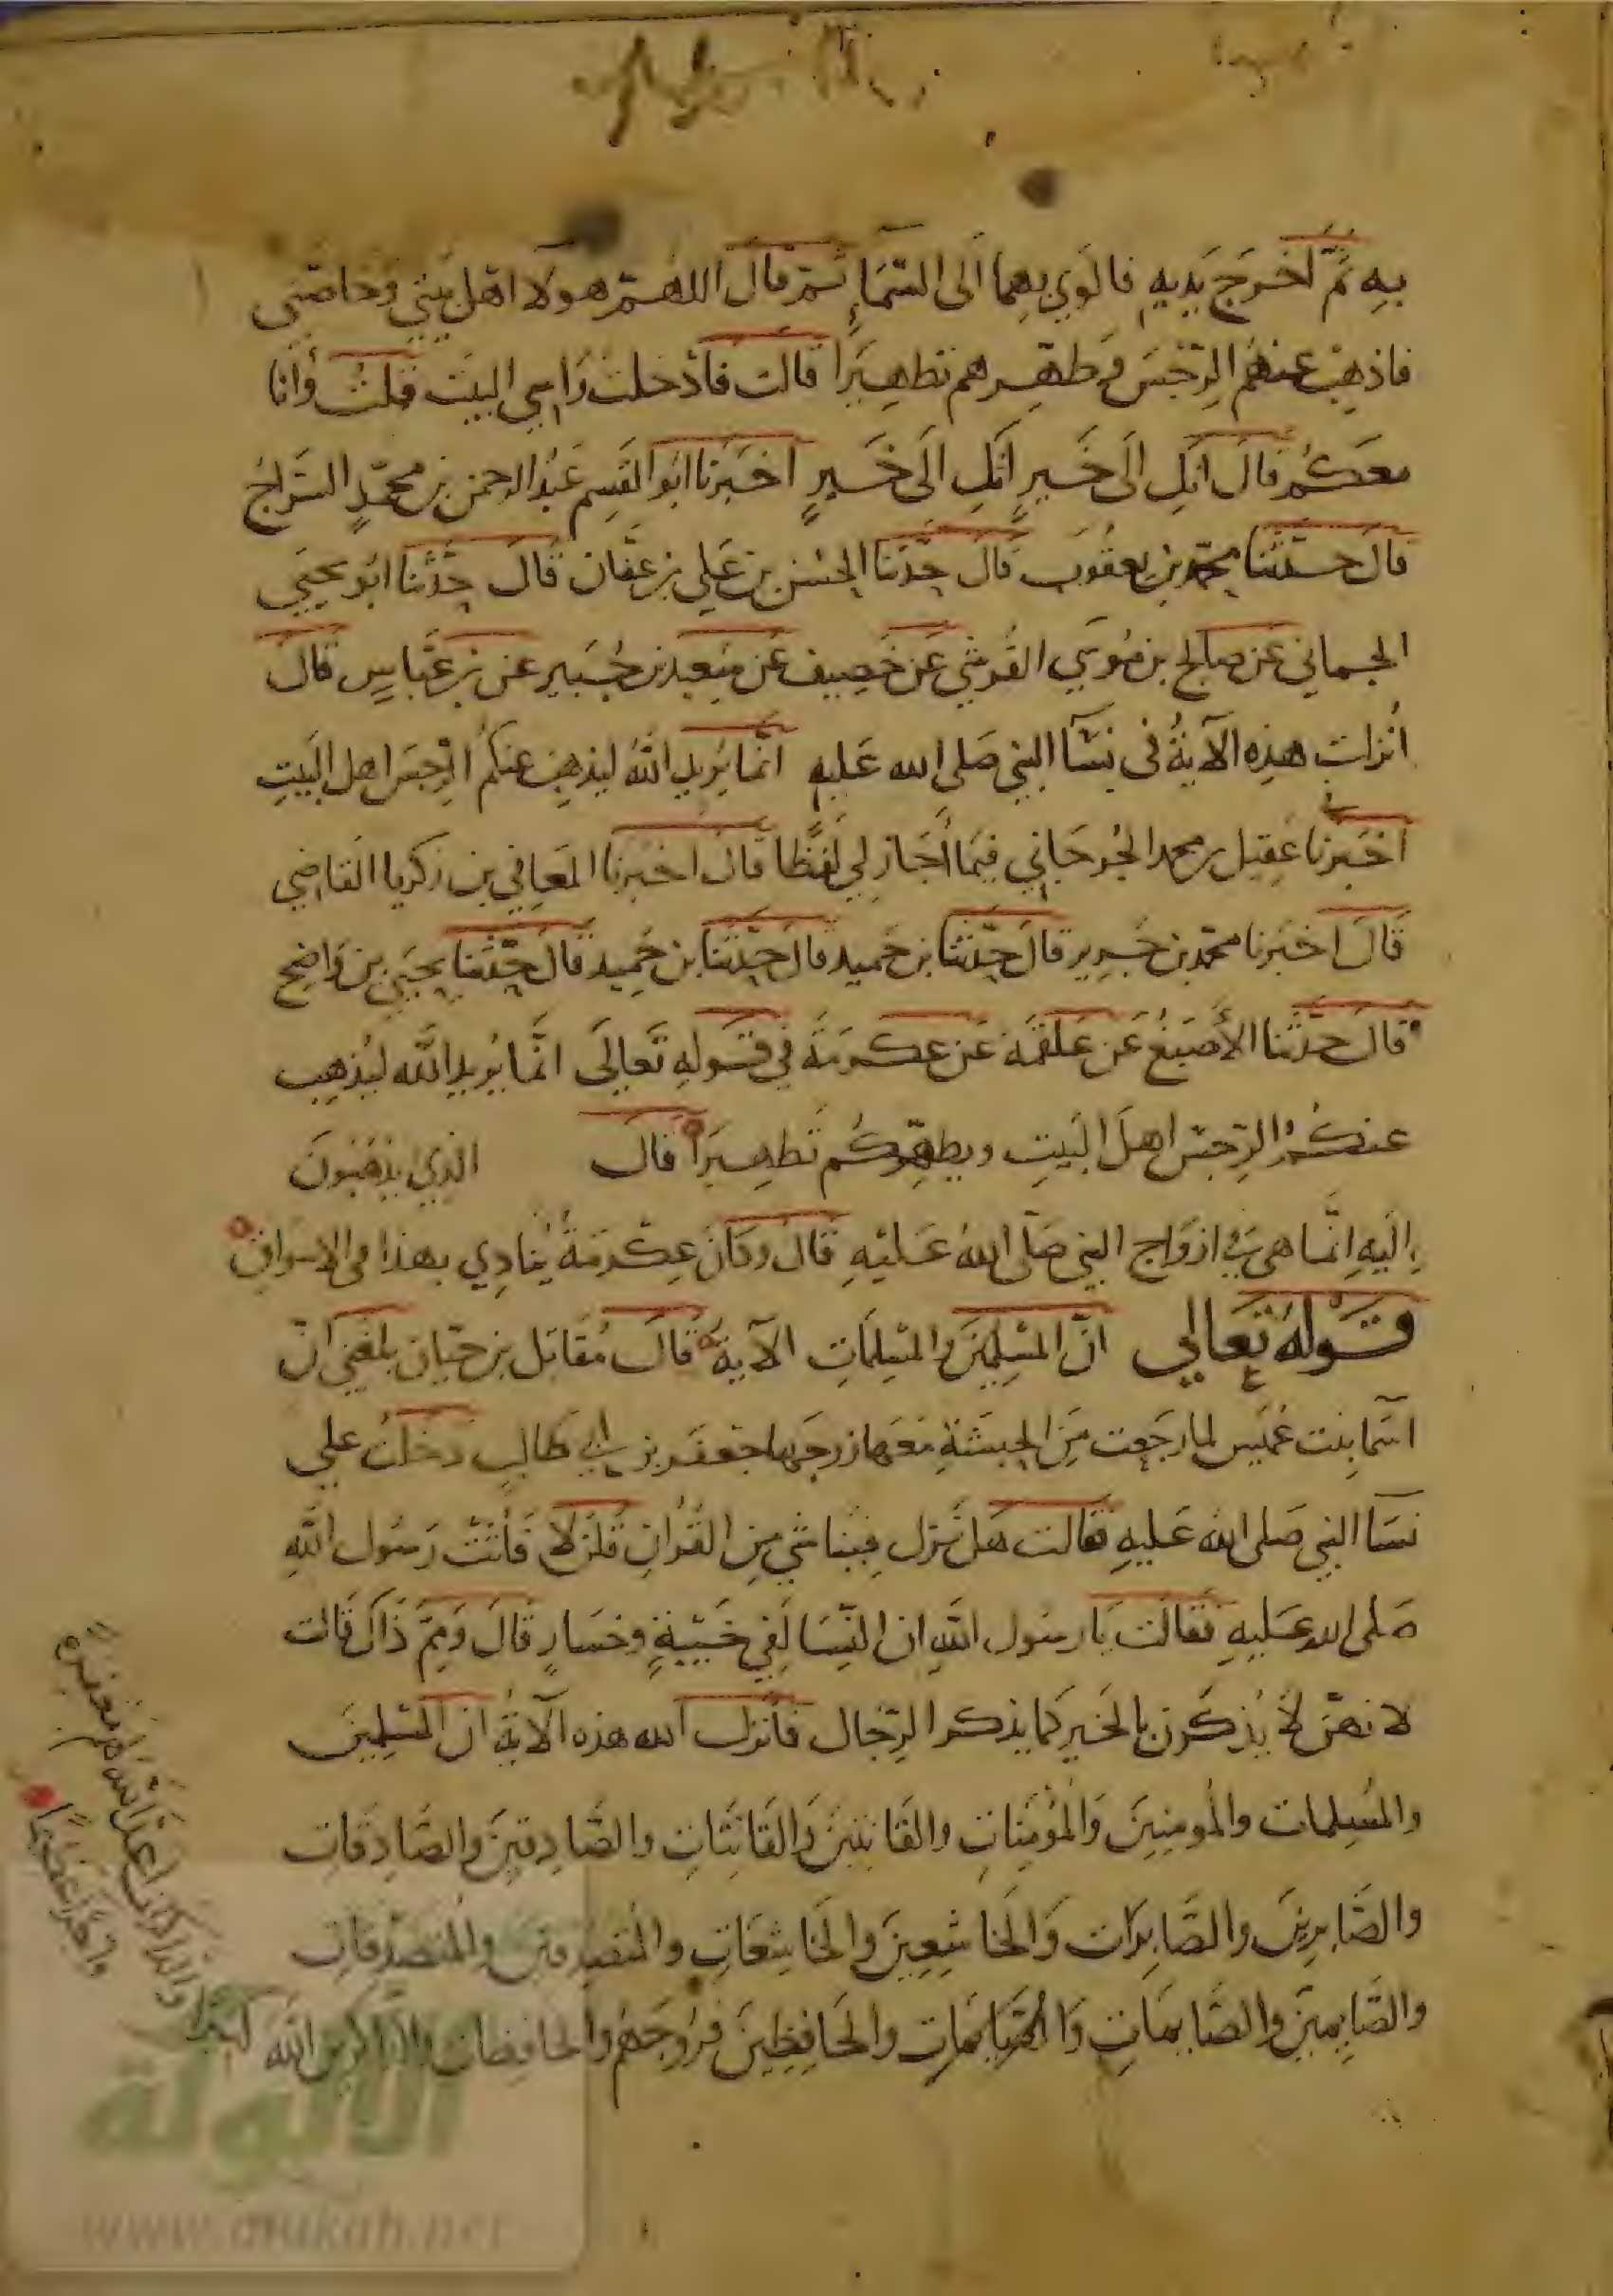 بِهِ ثُمَّ اخرَجَ يَدَيهِ فالوَي بِهِما الَى السَّمَاءِ ثم قال اللهم هولا اهل بَيتي وَحاصّتي
فاذهِبْ عنهُم الرّجْسَ وَطهّرهم تطهِيرًا قالت فادْخلتُ رَاسِي البيتَ فقلتُ وَانا
معَكم قالَ انكِ الَى خَيرٍ انكِ الَى خَيرٍ اخبَرنا ابُو القسِم عَبْد الرحمن بن محمّدٍ السّرّاجُ
قالَ حدّثنا محمّد بن يعقوب قالَ حدّثنا الحسَن بن عَلي بن عفّان قالَ حدّثنا ابُو يحيَى
الحماني عَن صالح بن مُوسَي القُرشي عَن خَصِيف عَن سَعِيد بن جُبَير عَن بن عَبّاسٍ قالَ
اُنزلت هذِه الآيةُ فى نسَآ النبي صَلى الله عَليهِ انّما يُريد اللهُ ليذهِبَ عنكمُ الرّجسَ اهل البَيتِ
اخبَرنا عَقِيل بن محمد الجُرجَاني فِيمَا أجَاز لِي لَفظًا قال اخبرنا المعَافي بن زكريا القاضِي
قالَ اخبَرنا محمّد بن جَرِير قالَ حدّثنا بن حُميد قالَ حدّثنا بن حُمِيد قالَ حَدّثنا يحيَي بن وَاضح
قالَ حدّثنا الأصبَغُ عَن عَلقمَة عَن عكرمَة في قَولِهِ تَعالَي انّما يُريد الله ليُذهِب
عنكُمُ الرّجسَ اهلَ البَيتِ ويطهّركُم تَطهِيرًا قال الذِي يَذهَبُونَ
اِلَيهِ اِنّما هي في ازوَاج النبي صَلّى اللهُ عَليْهِ قالَ وكانَ عِكْرمَةُ يُنادِي بهذا فى الاسوَاقِ
قَولهُ تَعالي انّ المُسْلِمِينَ والمُسْلِمَاتِ الآية قالَ مُقاتل بن حيّان بلغني انّ
اسمَا بنت عُمَيس لما رجَعت مِنَ الحبَشَةِ مَعَها زوجَها جَعفَر بن ابي طَالبٍ دخلَتُ علي
نسَآ النبي صَلى الله عَليهِ فقالت هَل نُزل فِينا شي مِن القُرانِ قُلن لا فَاتَتْ رَسُول اللهِ
صَلى الله عَليهِ فقالَت يَا رسُول اللهِ ان النِّسَا لَفِي خَيْبَةٍ وخسَارٍ قَالَ وَمِمّ ذَاكَ قَالت
لانهنّ لَا يُذكَرن بالخَير كَما يذكر الرّجال فأنزل الله هذه الآيةُ ان المُسْلِمِينَ
والمُسِلمات والمُومِنِينَ وَالمُؤمِنَاتِ والقَانِتينَ وَالقَانِتَاتِ والصَّادِقِينَ والصَّادِقَات
والصَّابِرينَ والصَّابِرَات وَالخاشِعِينَ وَالخَاشِعَاتِ والمُتصَدِقينَ والمُتَصَدّقات
والصَّايِمِينَ والصَّايِمَاتِ والحَافِظِينَ فرُوجَهُم والحافِظات والذاكرين اللهَ
كثيرًا والذاكرات اعدّ الله لهم مغفرةً
واجرًا عظيمًا
الألوكة
www.alukah.net